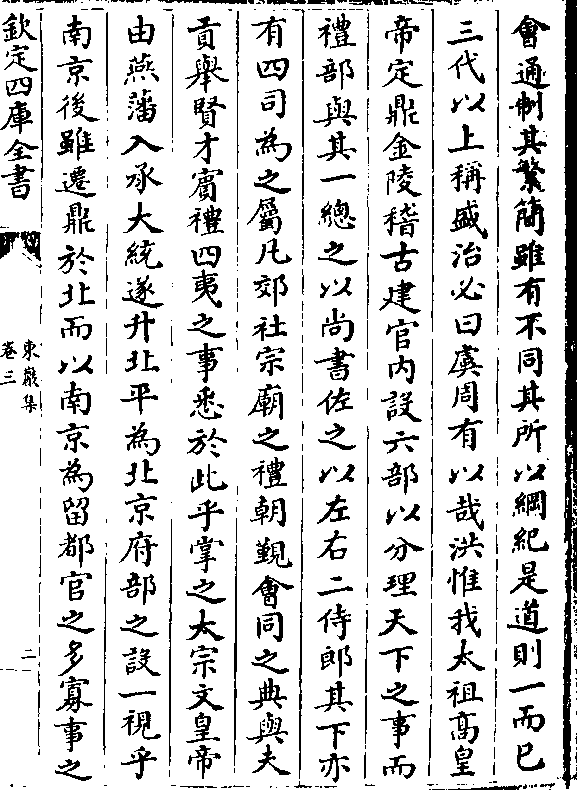 會通制其繁簡雖有不同其所以綱紀是道則一而已
三代以上稱盛治必曰虞周有以哉洪惟我太祖高皇
帝定鼎金陵稽古建官内設六部以分理天下之事而
禮部與其一總之以尚書佐之以左右二侍郎其下亦
有四司為之屬凡郊社宗廟之禮朝覲會同之典與夫
貢舉賢才賓禮四夷之事悉於此乎掌之太宗文皇帝
由燕藩入承大統遂升北平為北京府部之設一視乎
南京後雖遷鼎於北而以南京為留都官之多寡事之
欽定四庫全書
東巖集
卷三
二